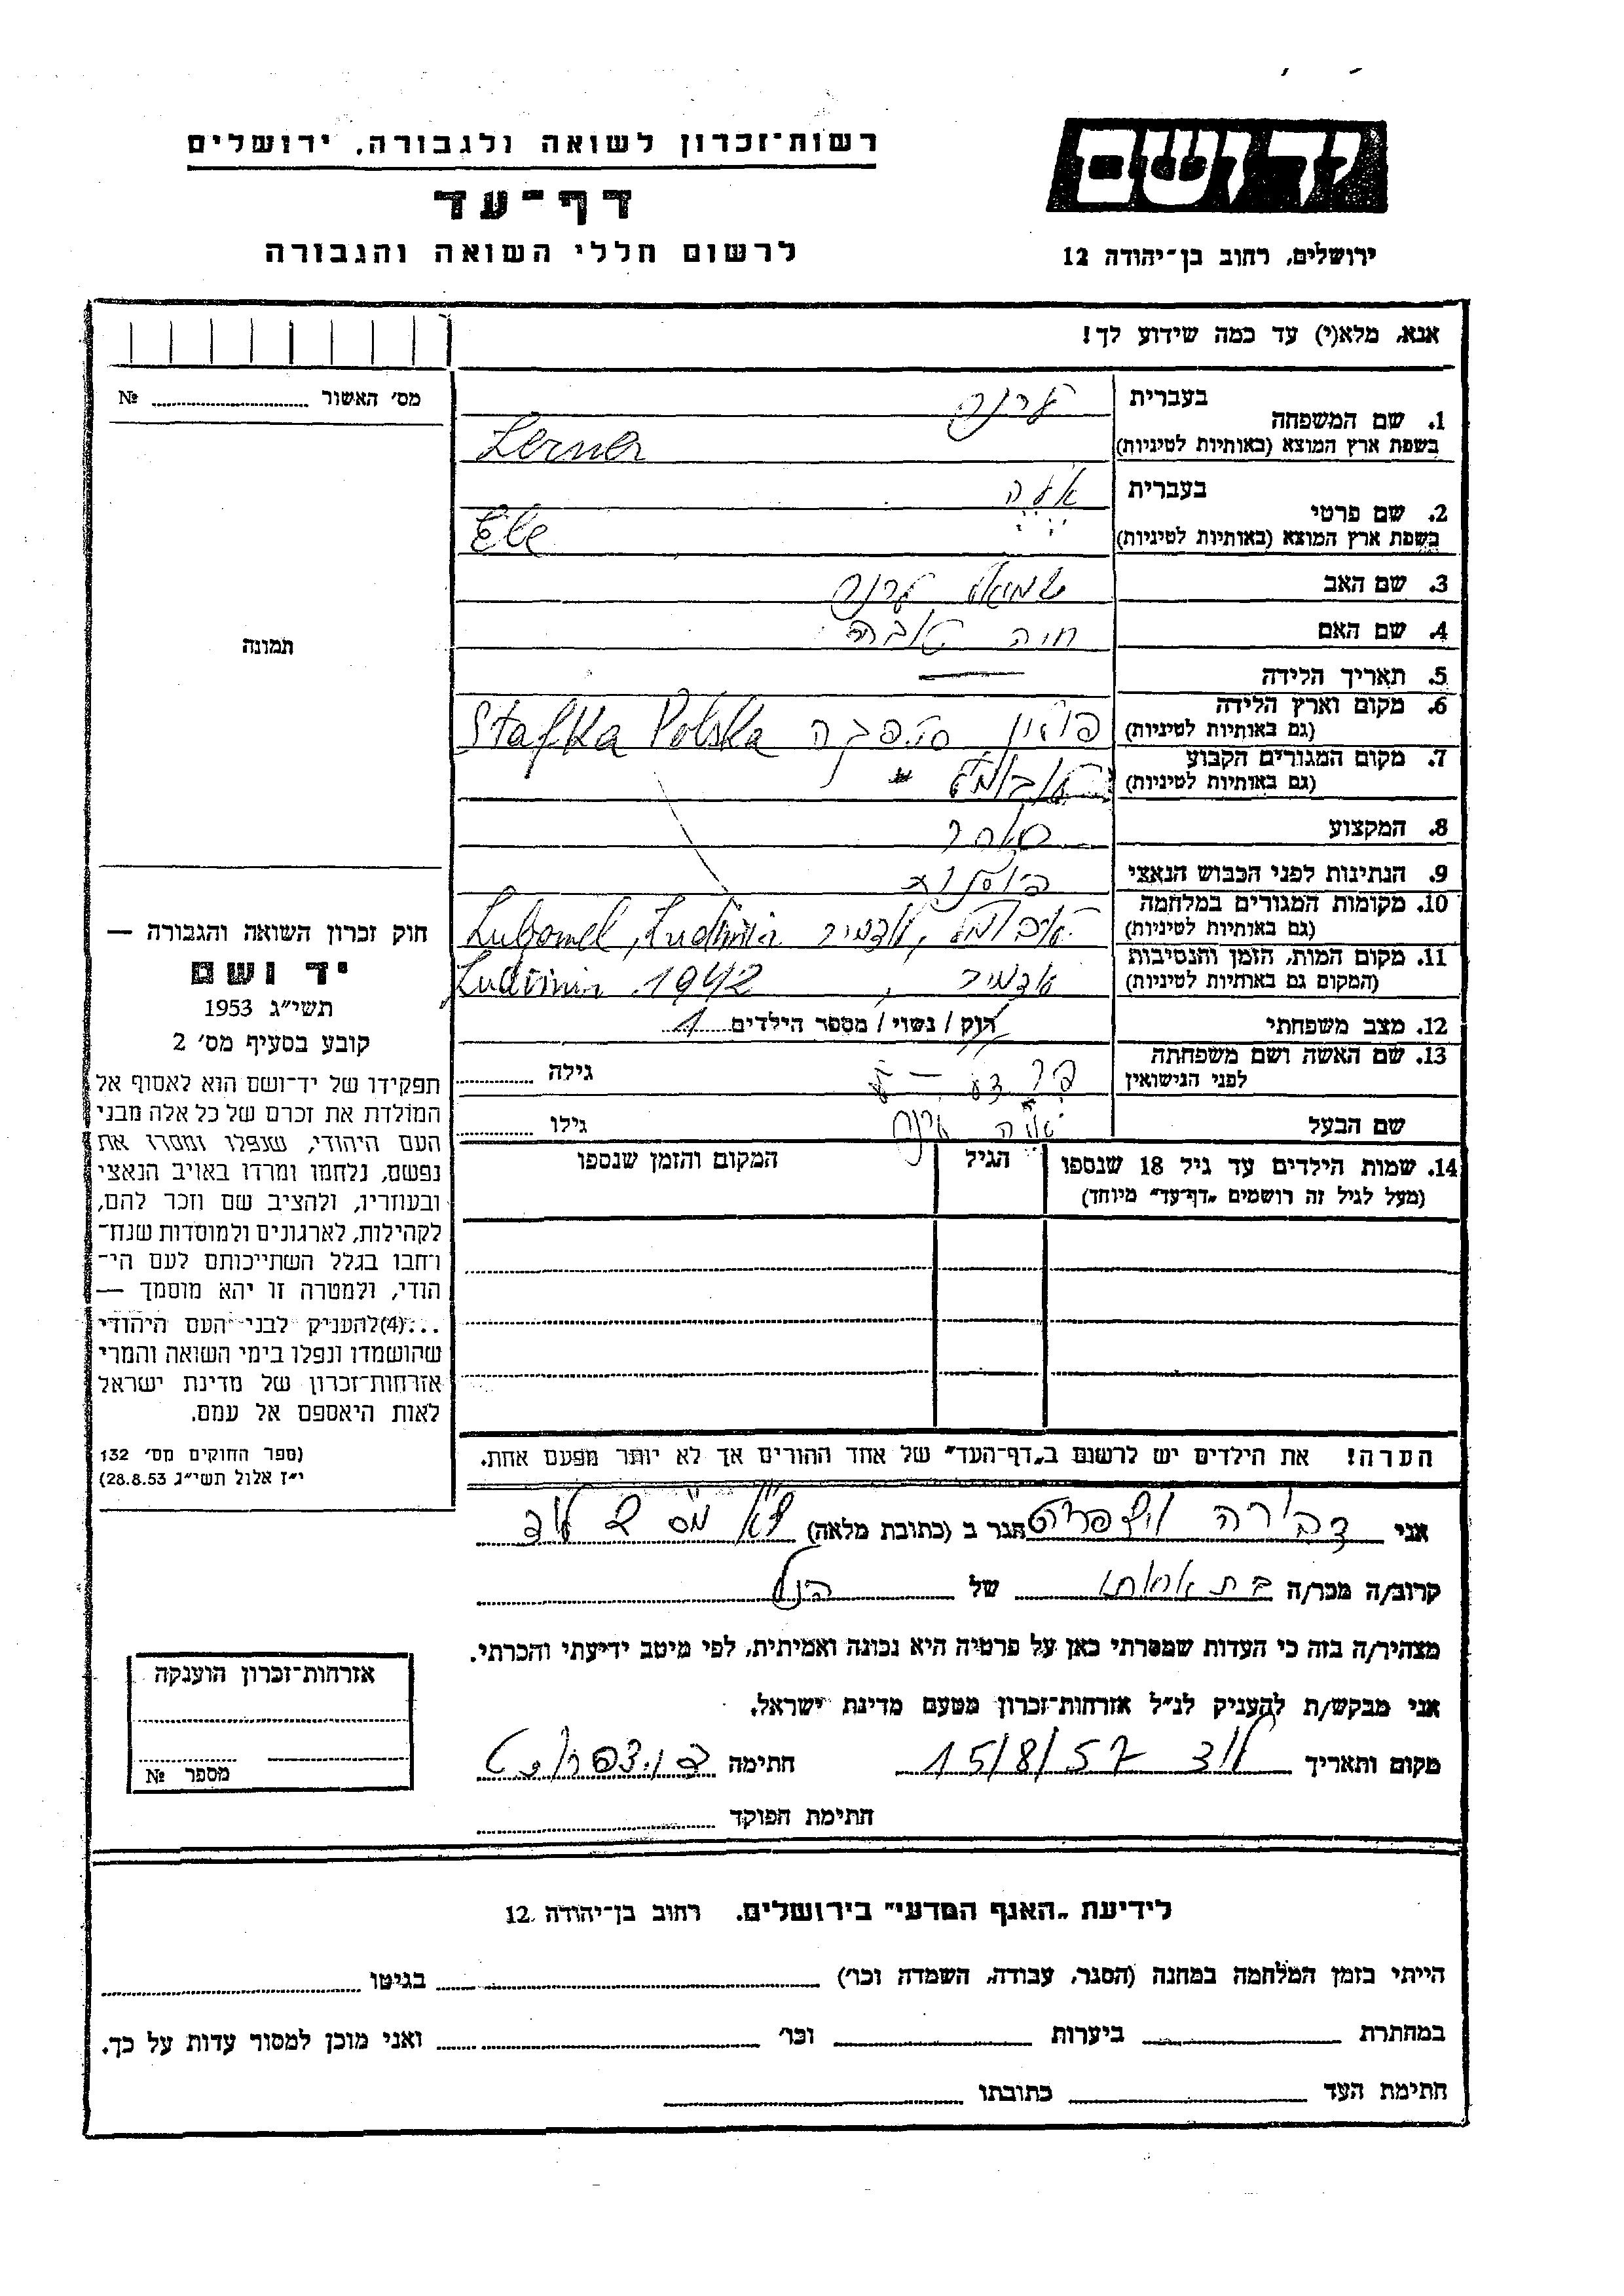 רשות־זכרון לשואה ולגבורה, ירושלים
דף־עד
לרשום חללי השואה והגבורה
יד ושם
ירושלים, רחוב בן־יהודה 12
אנא, מלא(י) עד כמה שידוע לך!
מס׳ האשור № 
תמונה
חוק זכרון השואה והגבורה —
יד ושם
תשי״ג 1953
קובע בסעיף מס׳ 2
תפקידו של יד־ושם הוא לאסוף אל
המולדת את זכרם של כל אלה מבני
העם היהודי, שנפלו ומסרו את
נפשם, נלחמו ומרדו באויב הנאצי
ובעוזריו, ולהציב שם וזכר להם,
לקהילות, לארגונים ולמוסדות שנח־
רחבו בגלל השתייכותם לעם הי־
הודי, ולמטרה זו יהא מוסמך —
...(4)להעניק לבני העם היהודי
שהושמדו ונפלו בימי השואה והמרי
אזרחות־זכרון של מדינת ישראל
לאות היאספם אל עמם.
(ספר החוקים מס׳ 132
י״ז אלול תשי״ג 28.8.53)
1. שם המשפחה
בעברית לרנר
בשפת ארץ המוצא (באותיות לטיניות) Lerner
2. שם פרטי
בעברית
בשפת ארץ המוצא (באותיות לטיניות)
3. שם האב שמואל לרנר
4. שם האם חיה
5. תאריך הלידה —
6. מקום וארץ הלידה
(גם באותיות לטיניות) פולין Stafka Polska
7. מקום המגורים הקבוע
(גם באותיות לטיניות)
8. המקצוע סוחר
9. הנתינות לפני הכבוש הנאצי פולנית
10. מקומות המגורים במלחמה
(גם באותיות לטיניות) Lubomel, Ludimir
11. מקום המות, הזמן והנסיבות
(המקום גם באותיות לטיניות) לודמיר, Ludimir 1942
12. מצב משפחתי רווק / נשוי / מספר הילדים 1
13. שם האשה ושם משפחתה
לפני הנישואין גילה
שם הבעל גילו
14. שמות הילדים עד גיל 18 שנספו הגיל המקום והזמן שנספו
(מעל לגיל זה רושמים „דף־עד״ מיוחד)
הערה! את הילדים יש לרשום ב„דף־העד״ של אחד ההורים אך לא יותר מפעם אחת.
אני דבורה הגר ב (כתובת מלאה) לוד
קרוב/ה מכר/ה בת אחותו של הנ״ל
מצהיר/ה בזה כי העדות שמסרתי כאן על פרטיה היא נכונה ואמיתית, לפי מיטב ידיעתי והכרתי.
אני מבקש/ת להעניק לנ״ל אזרחות־זכרון מטעם מדינת ישראל.
מקום ותאריך לוד 15/8/57 חתימה
חתימת הפוקד
אזרחות־זכרון הוענקה
מספר №
לידיעת „האגף המדעי״ בירושלים, רחוב בן־יהודה 12
הייתי בזמן המלחמה במחנה (הסגר, עבודה, השמדה וכו׳) בגיטו
במחתרת ביערות וכו׳ ואני מוכן למסור עדות על כך.
חתימת העד כתובתו